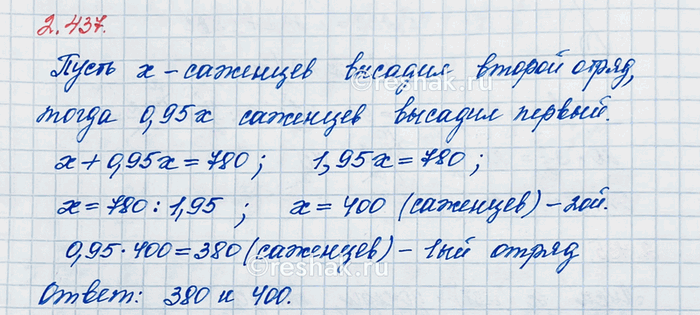 2.437.
Пусть x – саженцев высадил второй отряд,
тогда 0,95x саженцев высадил первый.
x + 0,95x = 780 ; 1,95x = 780 ;
x = 780 : 1,95 ; x = 400 (саженцев) – 2ой.
0,95 · 400 = 380 (саженцев) – 1ый отряд
Ответ: 380 и 400.
©reshak.ru
©reshak.ru